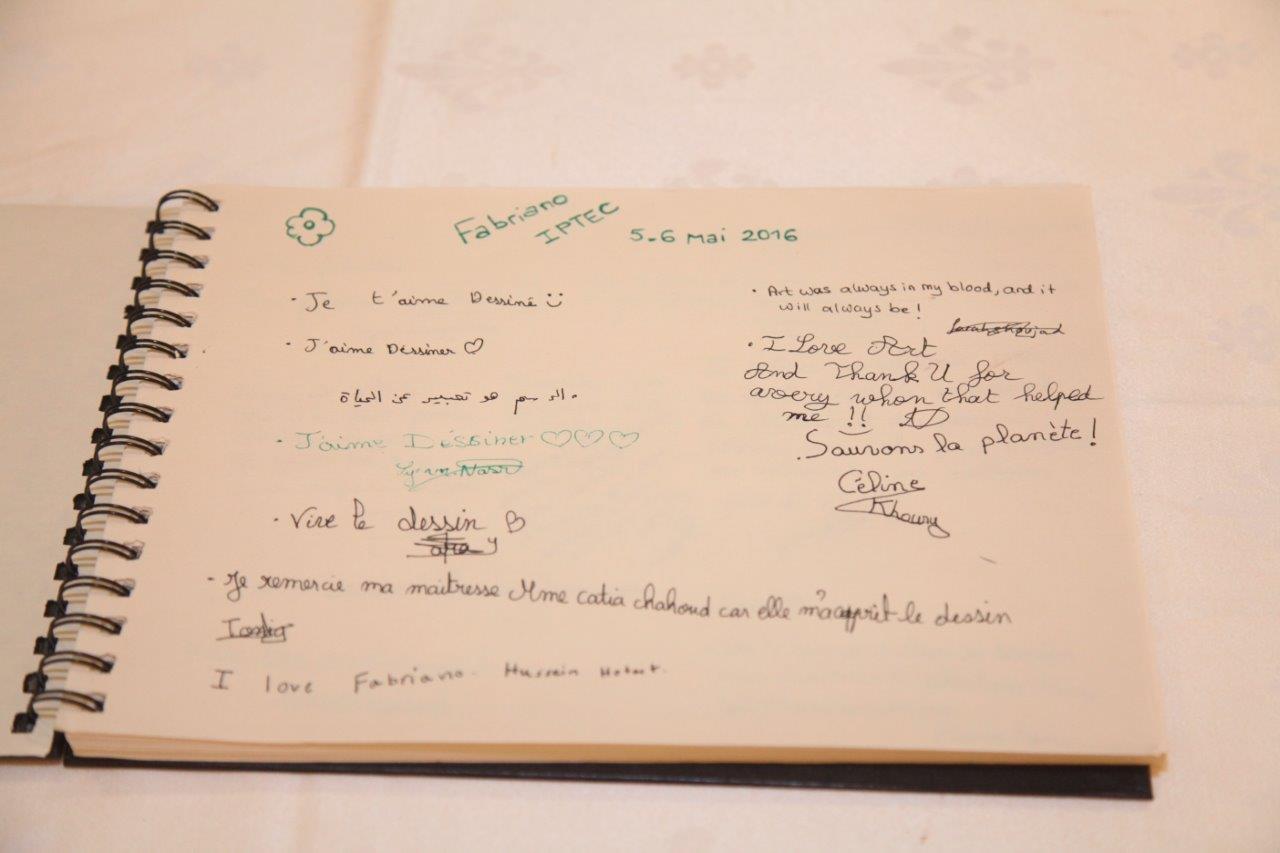 Fabriano
IPTEC
5-6 Mai 2016
• Je t'aime Dessiné
• J'aime Dessiner
• الرسم هو تعبير عن الحياة
• J'aime Déssiner
Nasr
• Vive le dessin
• Je remercie ma maitresse Mme catia chahoud car elle m'a apprit le dessin
I love Fabriano. Hussein
• Art was always in my blood, and it
will always be!
• I Love Art
And Thank U for
avery whon that helped
me !!
. Sauvons la planète!
Céline
Khoury